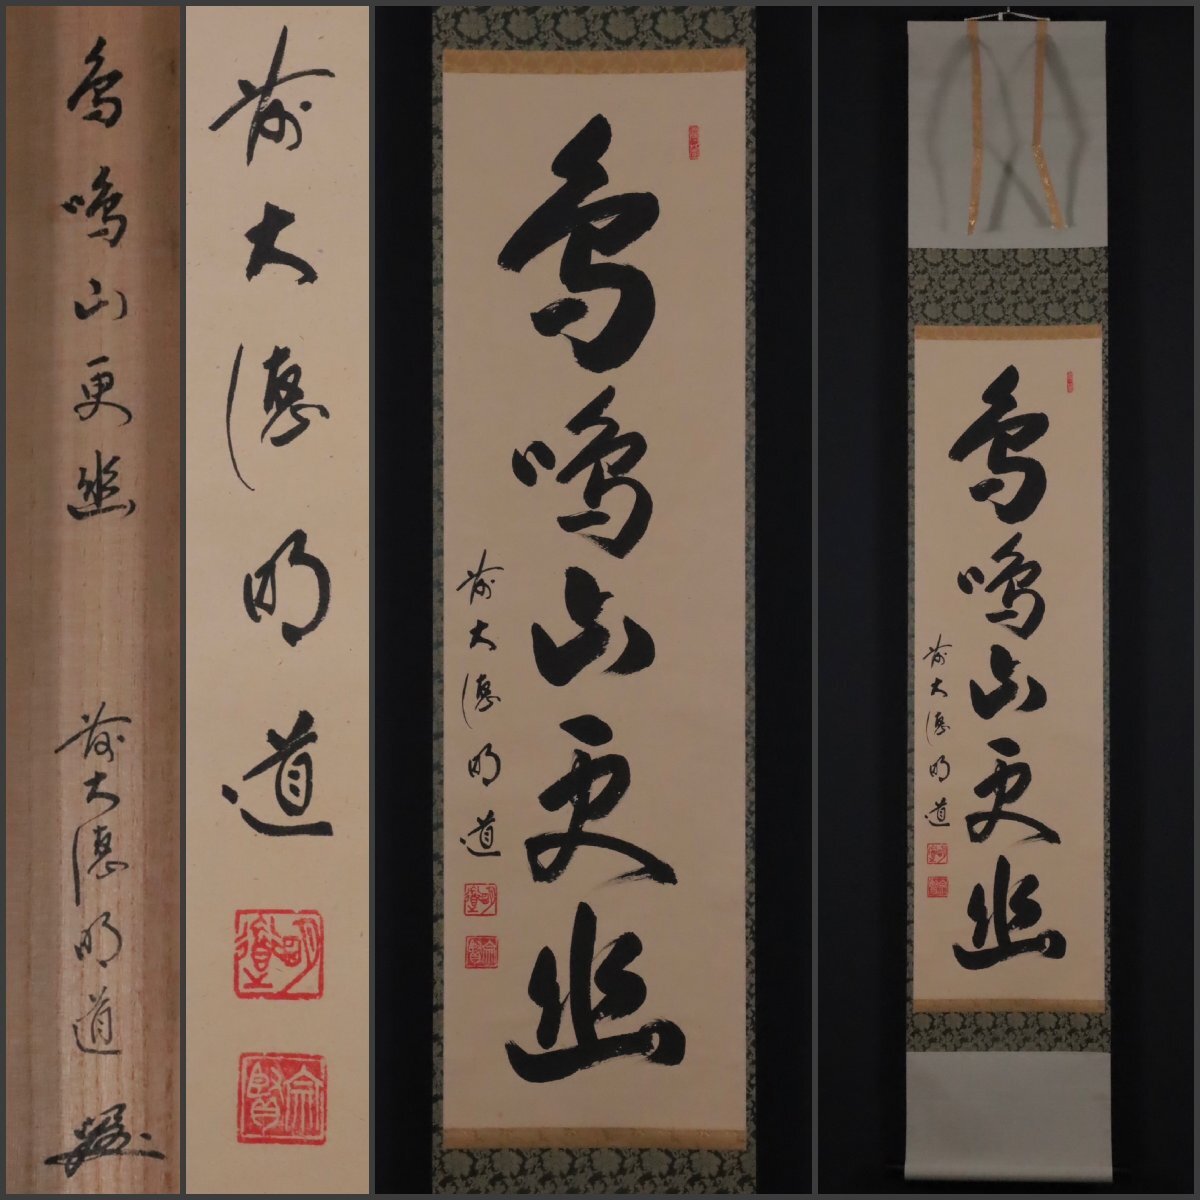 鳥鳴山更幽
前大徳明道
前大徳明道
明道
宗賢
鳥鳴山更幽
前大徳明道
鳥鳴山更幽
前大徳明道